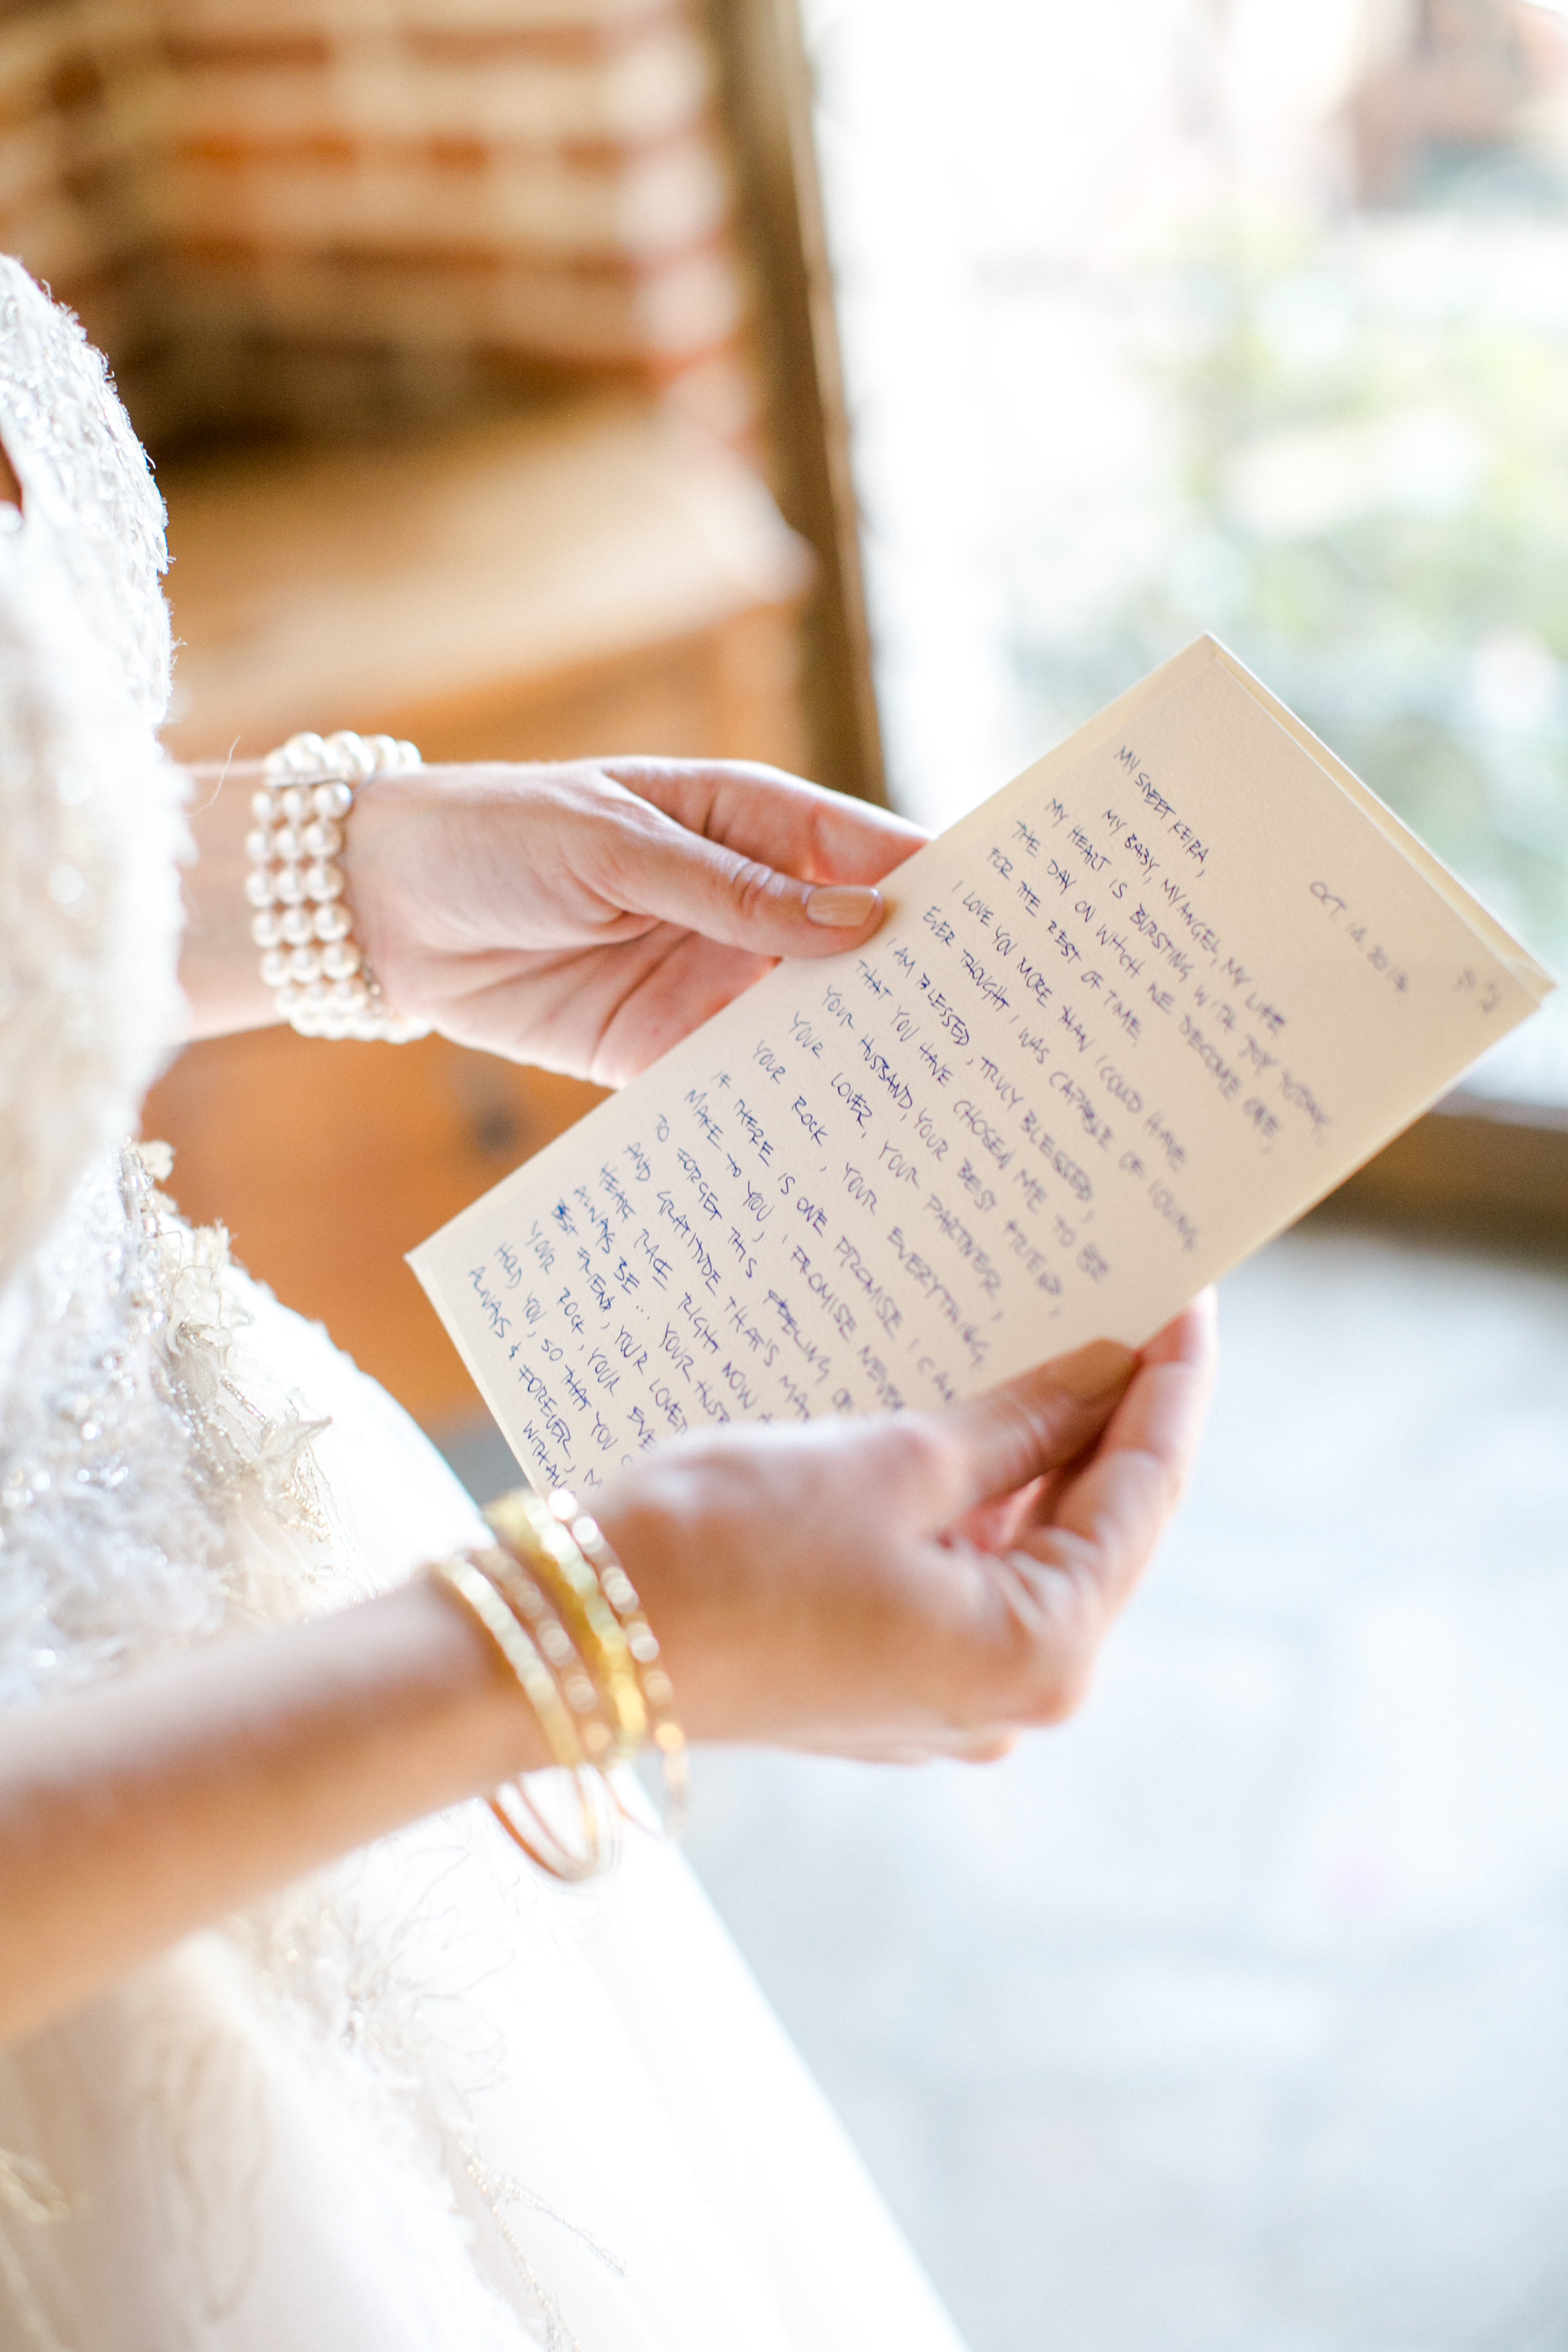 OCT. 14. 2017
MY SWEET KEIRA,
MY BABY, MY ANGEL, MY LIFE
MY HEART IS BURSTING WITH JOY TODAY,
THE DAY ON WHICH WE BECOME ONE,
FOR THE REST OF TIME
I LOVE YOU MORE THAN I COULD HAVE
EVER THOUGHT I WAS CAPABLE OF LOVING
I AM BLESSED, TRULY BLESSED,
THAT YOU HAVE CHOSEN ME TO BE
YOUR HUSBAND, YOUR BEST FRIEND,
YOUR LOVER, YOUR PARTNER,
YOUR ROCK, YOUR EVERYTHING.
IF THERE IS ONE PROMISE I CAN
MAKE TO YOU, I PROMISE NEVER
TO FORGET THIS FEELING OF
AND GRATITUDE THAT'S MA
HEART RACE RIGHT NOW
ALWAYS BE... YOUR HUSB
BEST FRIEND, YOUR LOVER
YOUR ROCK, YOUR EVE
HOLD YOU, SO THAT YOU
ALWAYS & FOREVER, M
WITH AL